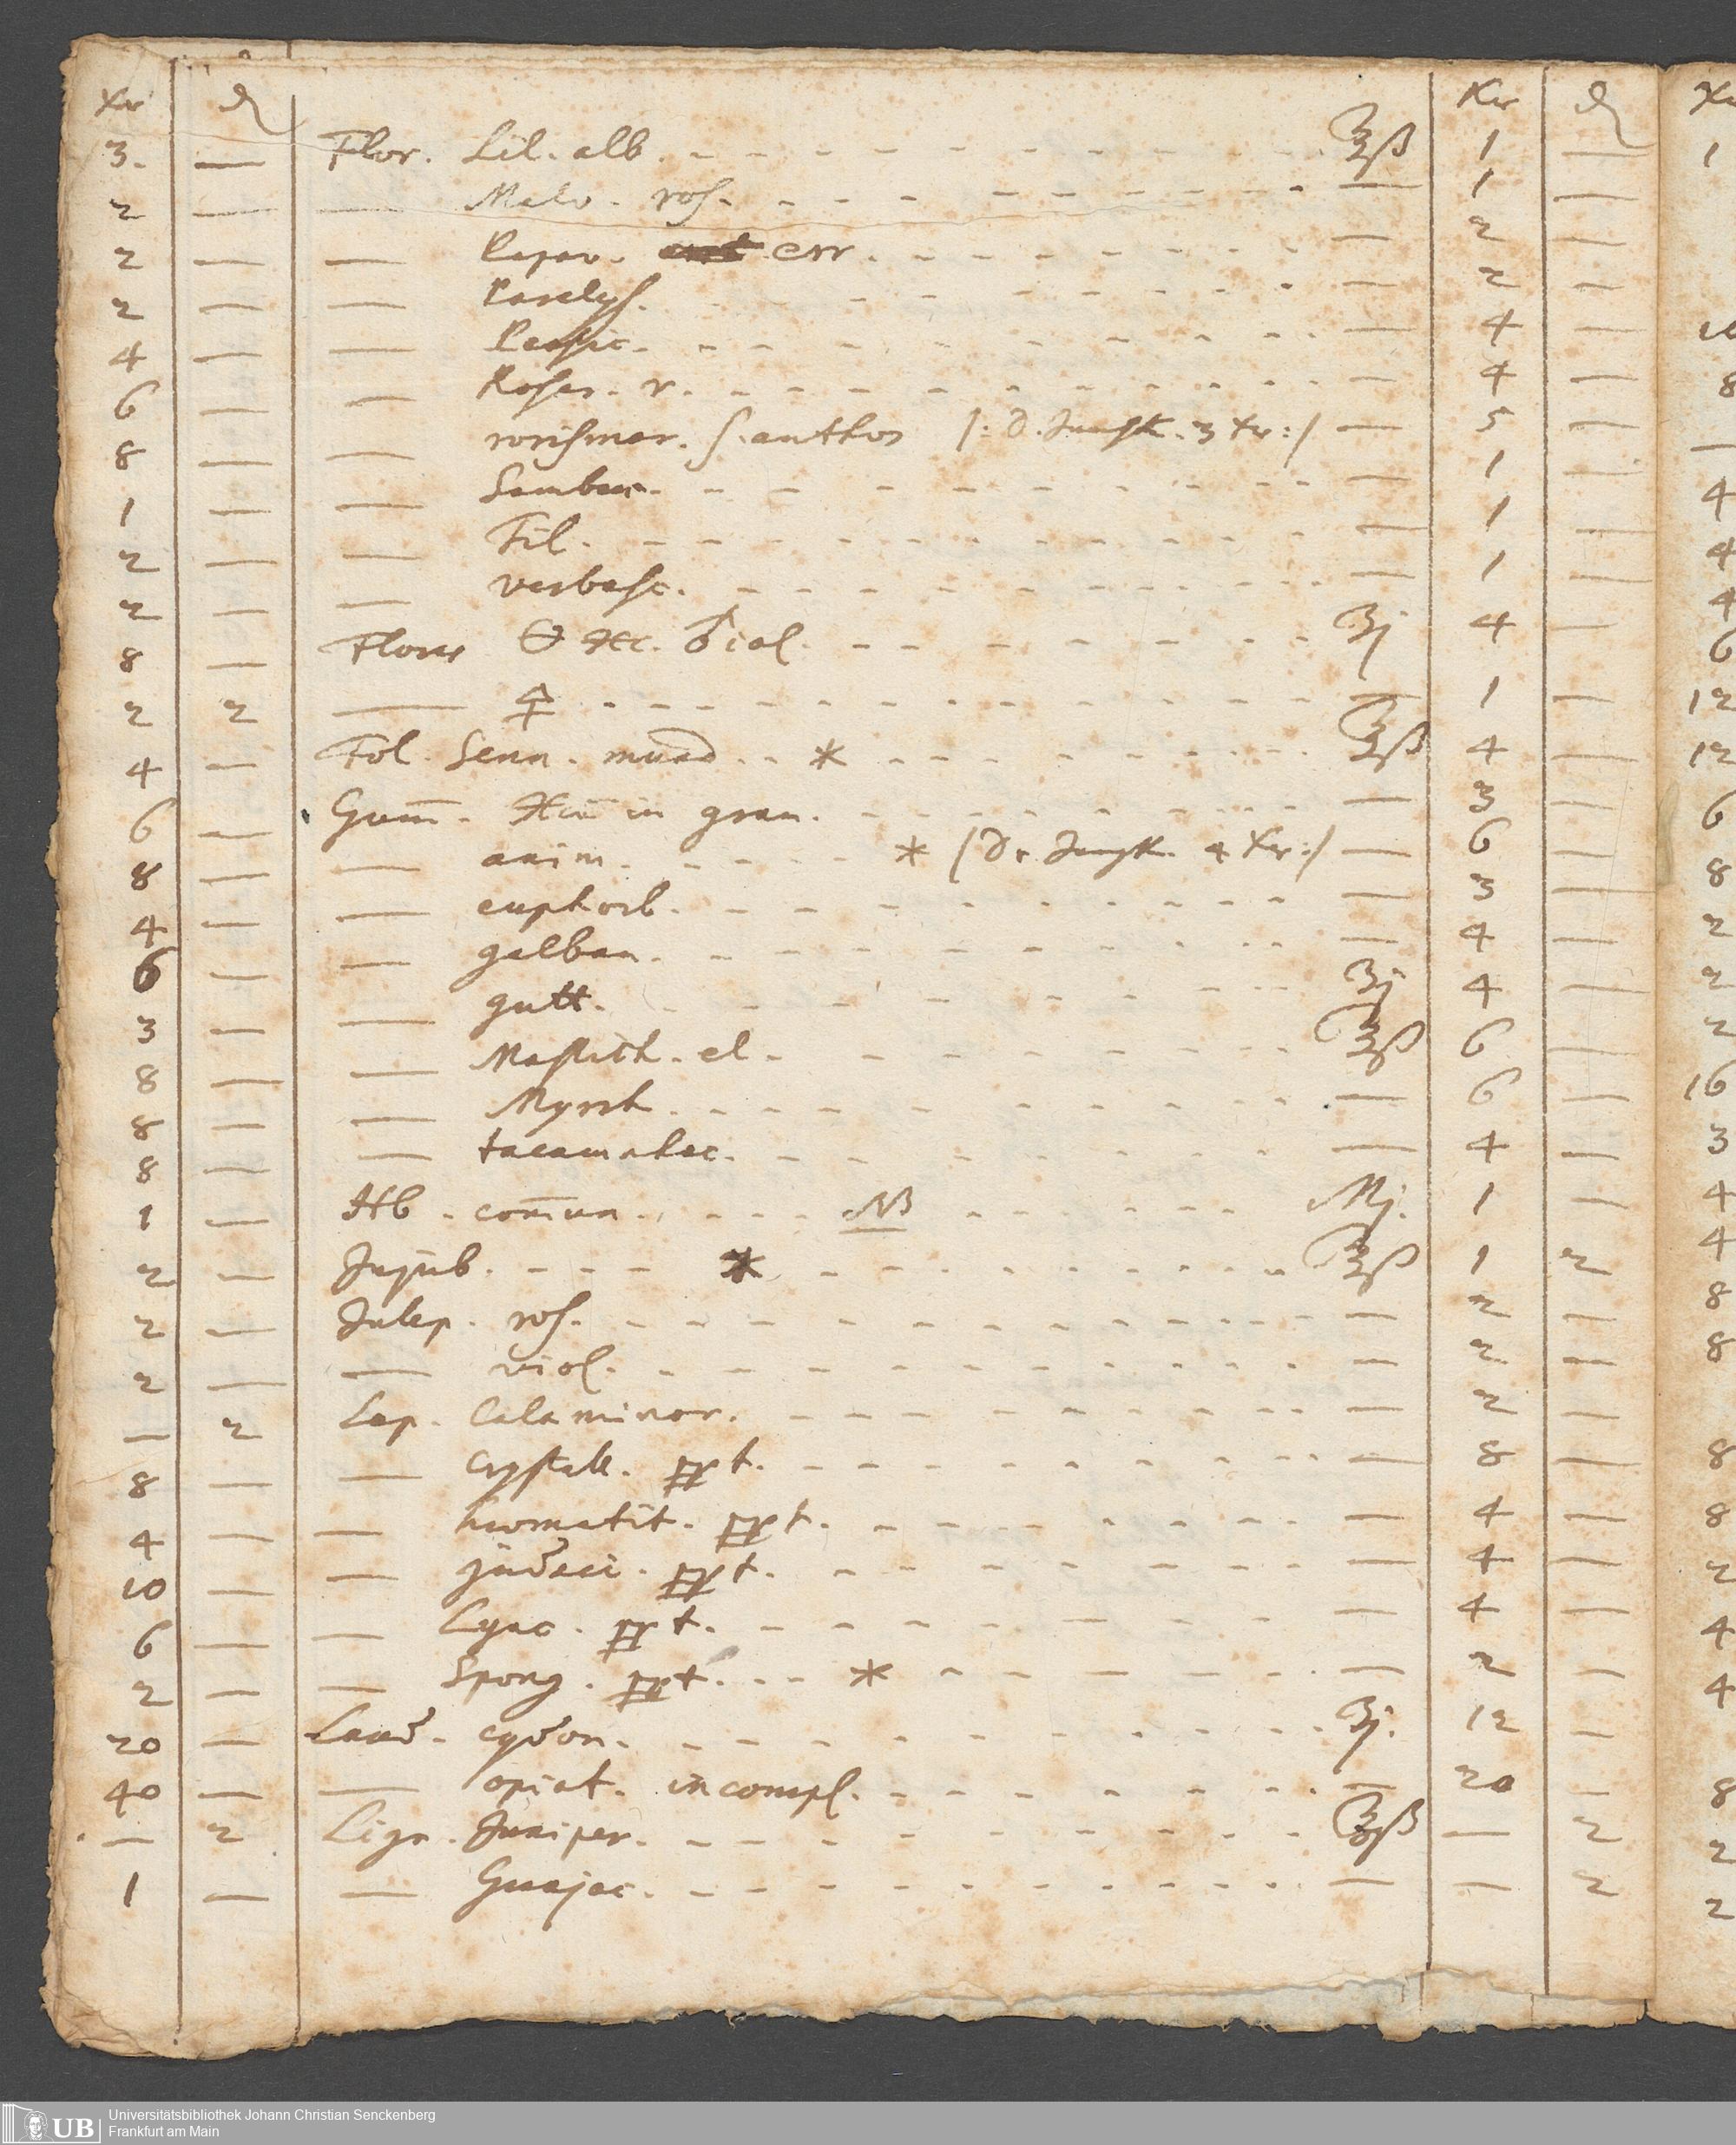 Xr ₰ Kr ₰
3. — Flor. Lil. alb. ℥ß 1 —
2 — — Malv. ros. — 1 —
2 — — Papav. err. — 2 —
2 — — Paralys. — 2 —
4 — — Persic. — 4 —
6 — — Rosar. r. — 4 —
8 — — rorismar. s. anthos |: D. 3 Xr :| — 5 —
1 — — Sambuc. — 1 —
2 — — Til. — 1 —
2 — — verbasc. — 1 —
8 — Flor ʒj 4 —
2 2 — 🜍 — 1 —
4 — Fol. Senn. mund. * ℥ß 4 —
6 — Gum̄. in gran. — 3 —
8 — — anim. * |D. 4 Xr :| — 6 —
4 — — euphorb. — 3 —
6 — — galban. — 4 —
3 — — gutt. ʒj 4 —
8 — — Mastich. el. ℥ß 6 —
8 — — Myrrh. — 6 —
8 — — tacamahac. — 4 —
1 — Hb. com̄un. NB Mj. 1 —
2 — Jujub. * ℥ß 1 2
2 — Julep. ros. — 2 —
2 — — viol. — 2 —
— 2 Lap. Calaminar. — 2 —
8 — — Crystall. ppt. — 8 —
4 — — hæmatit. ppt. — 4 —
10 — — judaic. ppt. — 4 —
6 — — Lync. ppt. — 4 —
2 — — Spong. ppt. * — 2 —
20 — Laud. cydon. ʒj. 12 —
40 — — opiat. incompl. — 20 —
— 2 Lign. Juniper. ℥ß — 2
1 — — Guajac. — — 2
Xr
1
10
8
—
4
4
4
6
12
12
6
8
2
2
2
16
3
4
4
8
8
8
8
2
4
4
8
2
2
UB Universitätsbibliothek Johann Christian Senckenberg
Frankfurt am Main